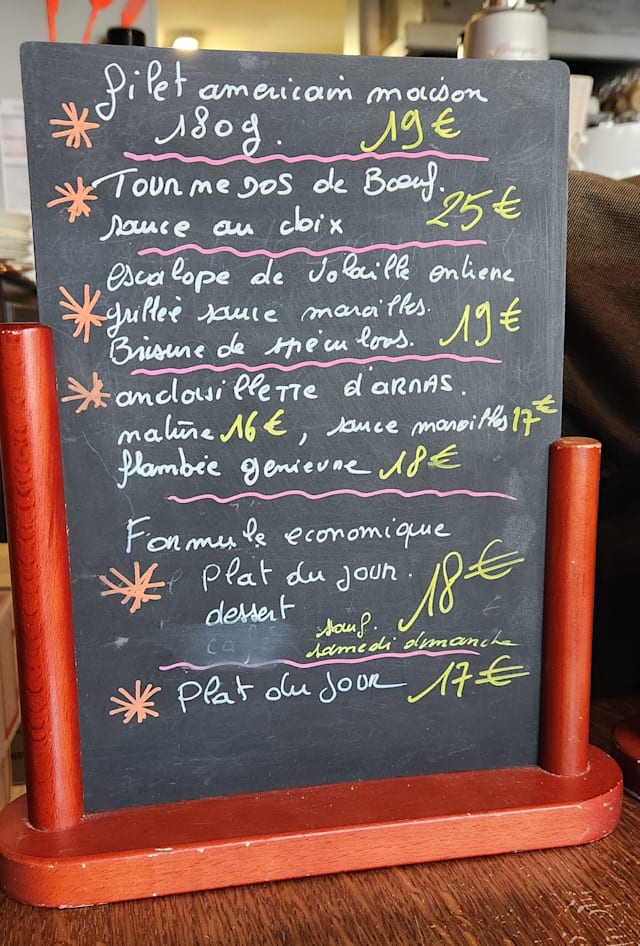 filet americain maison
180g. 19€
Tournedos de Bœuf.
sauce au choix 25€
escalope de volaille entiere
grillée sauce maroilles.
Brisure de spéculoos. 19€
andouillette d'arras.
nature 16€, sauce maroilles 17€
flambée genievre 18€
Formule economique
Plat du jour. 18€
dessert
sauf.
samedi dimanche
Plat du jour 17€